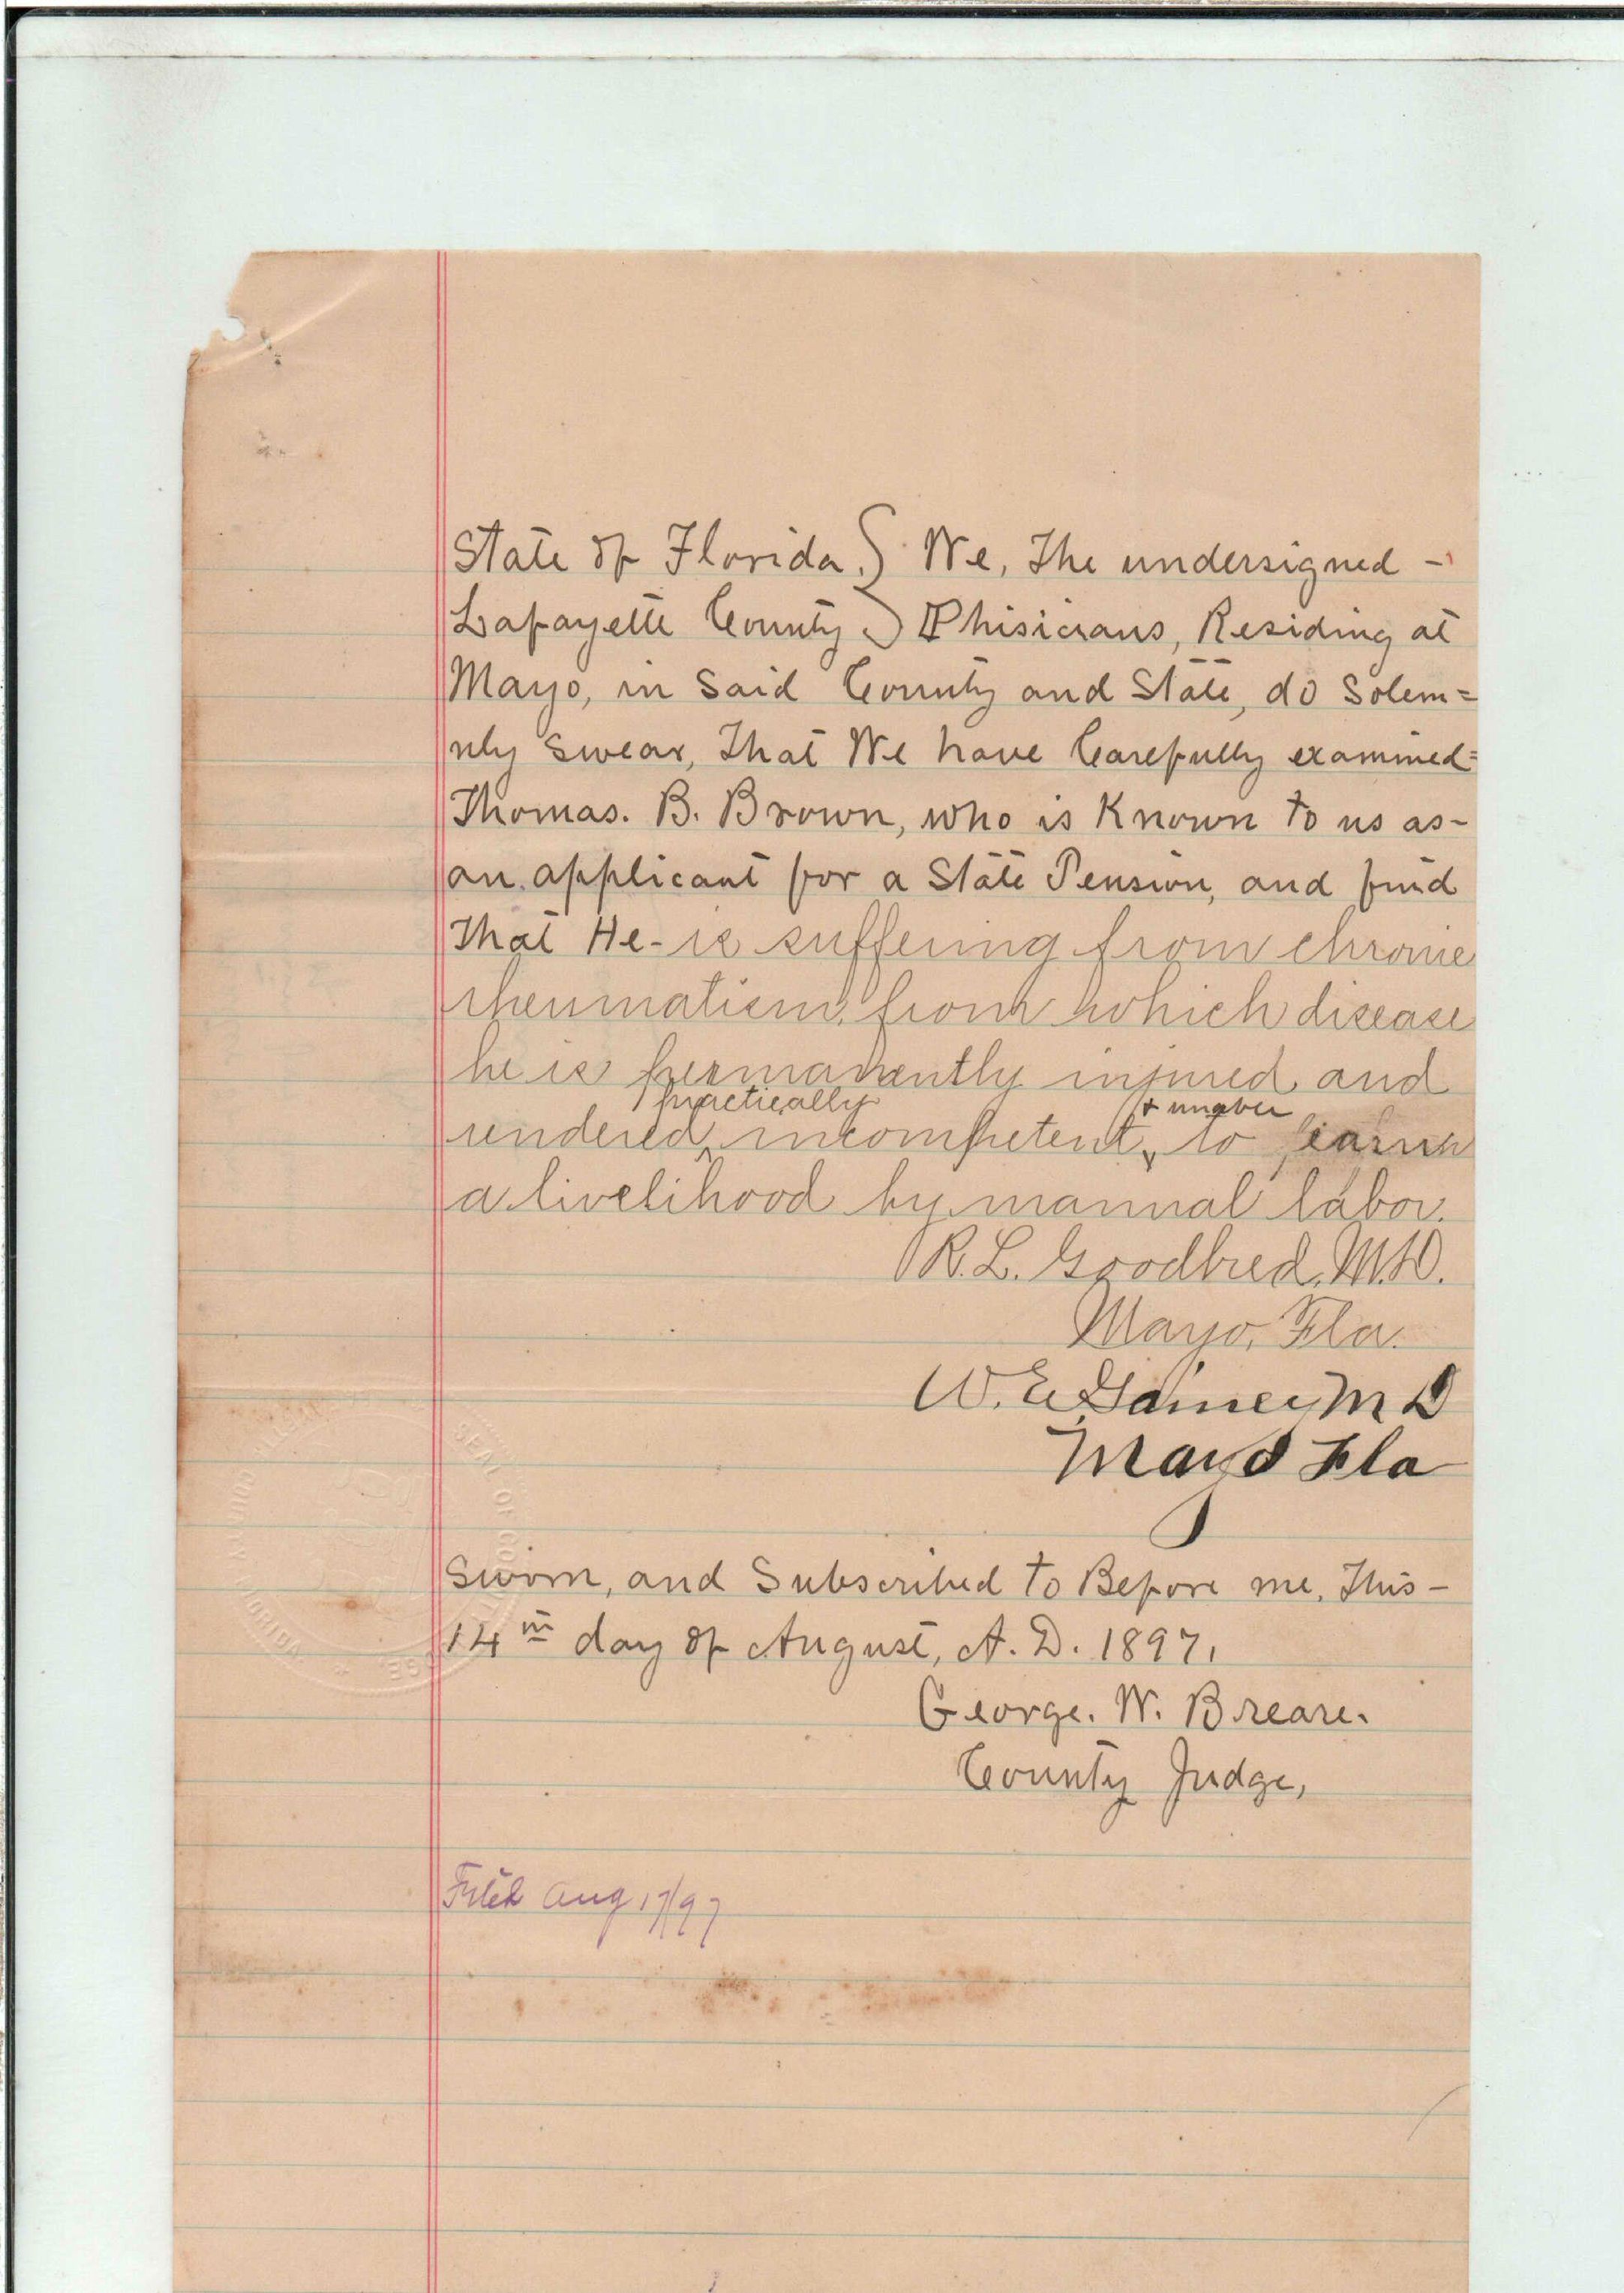 State of Florida.} We, The undersigned -
Lafayette County } Phisicians, Residing at
Mayo, in Said County and State, do Solem=
nly Swear, That We have Carefully examined=
Thomas. B. Brown, who is Known to us as-
an applicant for a State Pension, and find
That He- is suffering from chronic
rheumatism, from which disease
he is permanently injured and
practically & unable
rendered incompetent to earn
a livelihood by manual labor.
R. L. Goodbred, M.D.
Mayo, Fla.
W. E. Gainey M D
Mayo Fla
Sworn, and Subscribed to Before me, This-
14th day of August, A. D. 1897,
George. W. Breare.
County Judge,
Filed Aug 17/97
SEAL OF COUNTY
FLORIDA